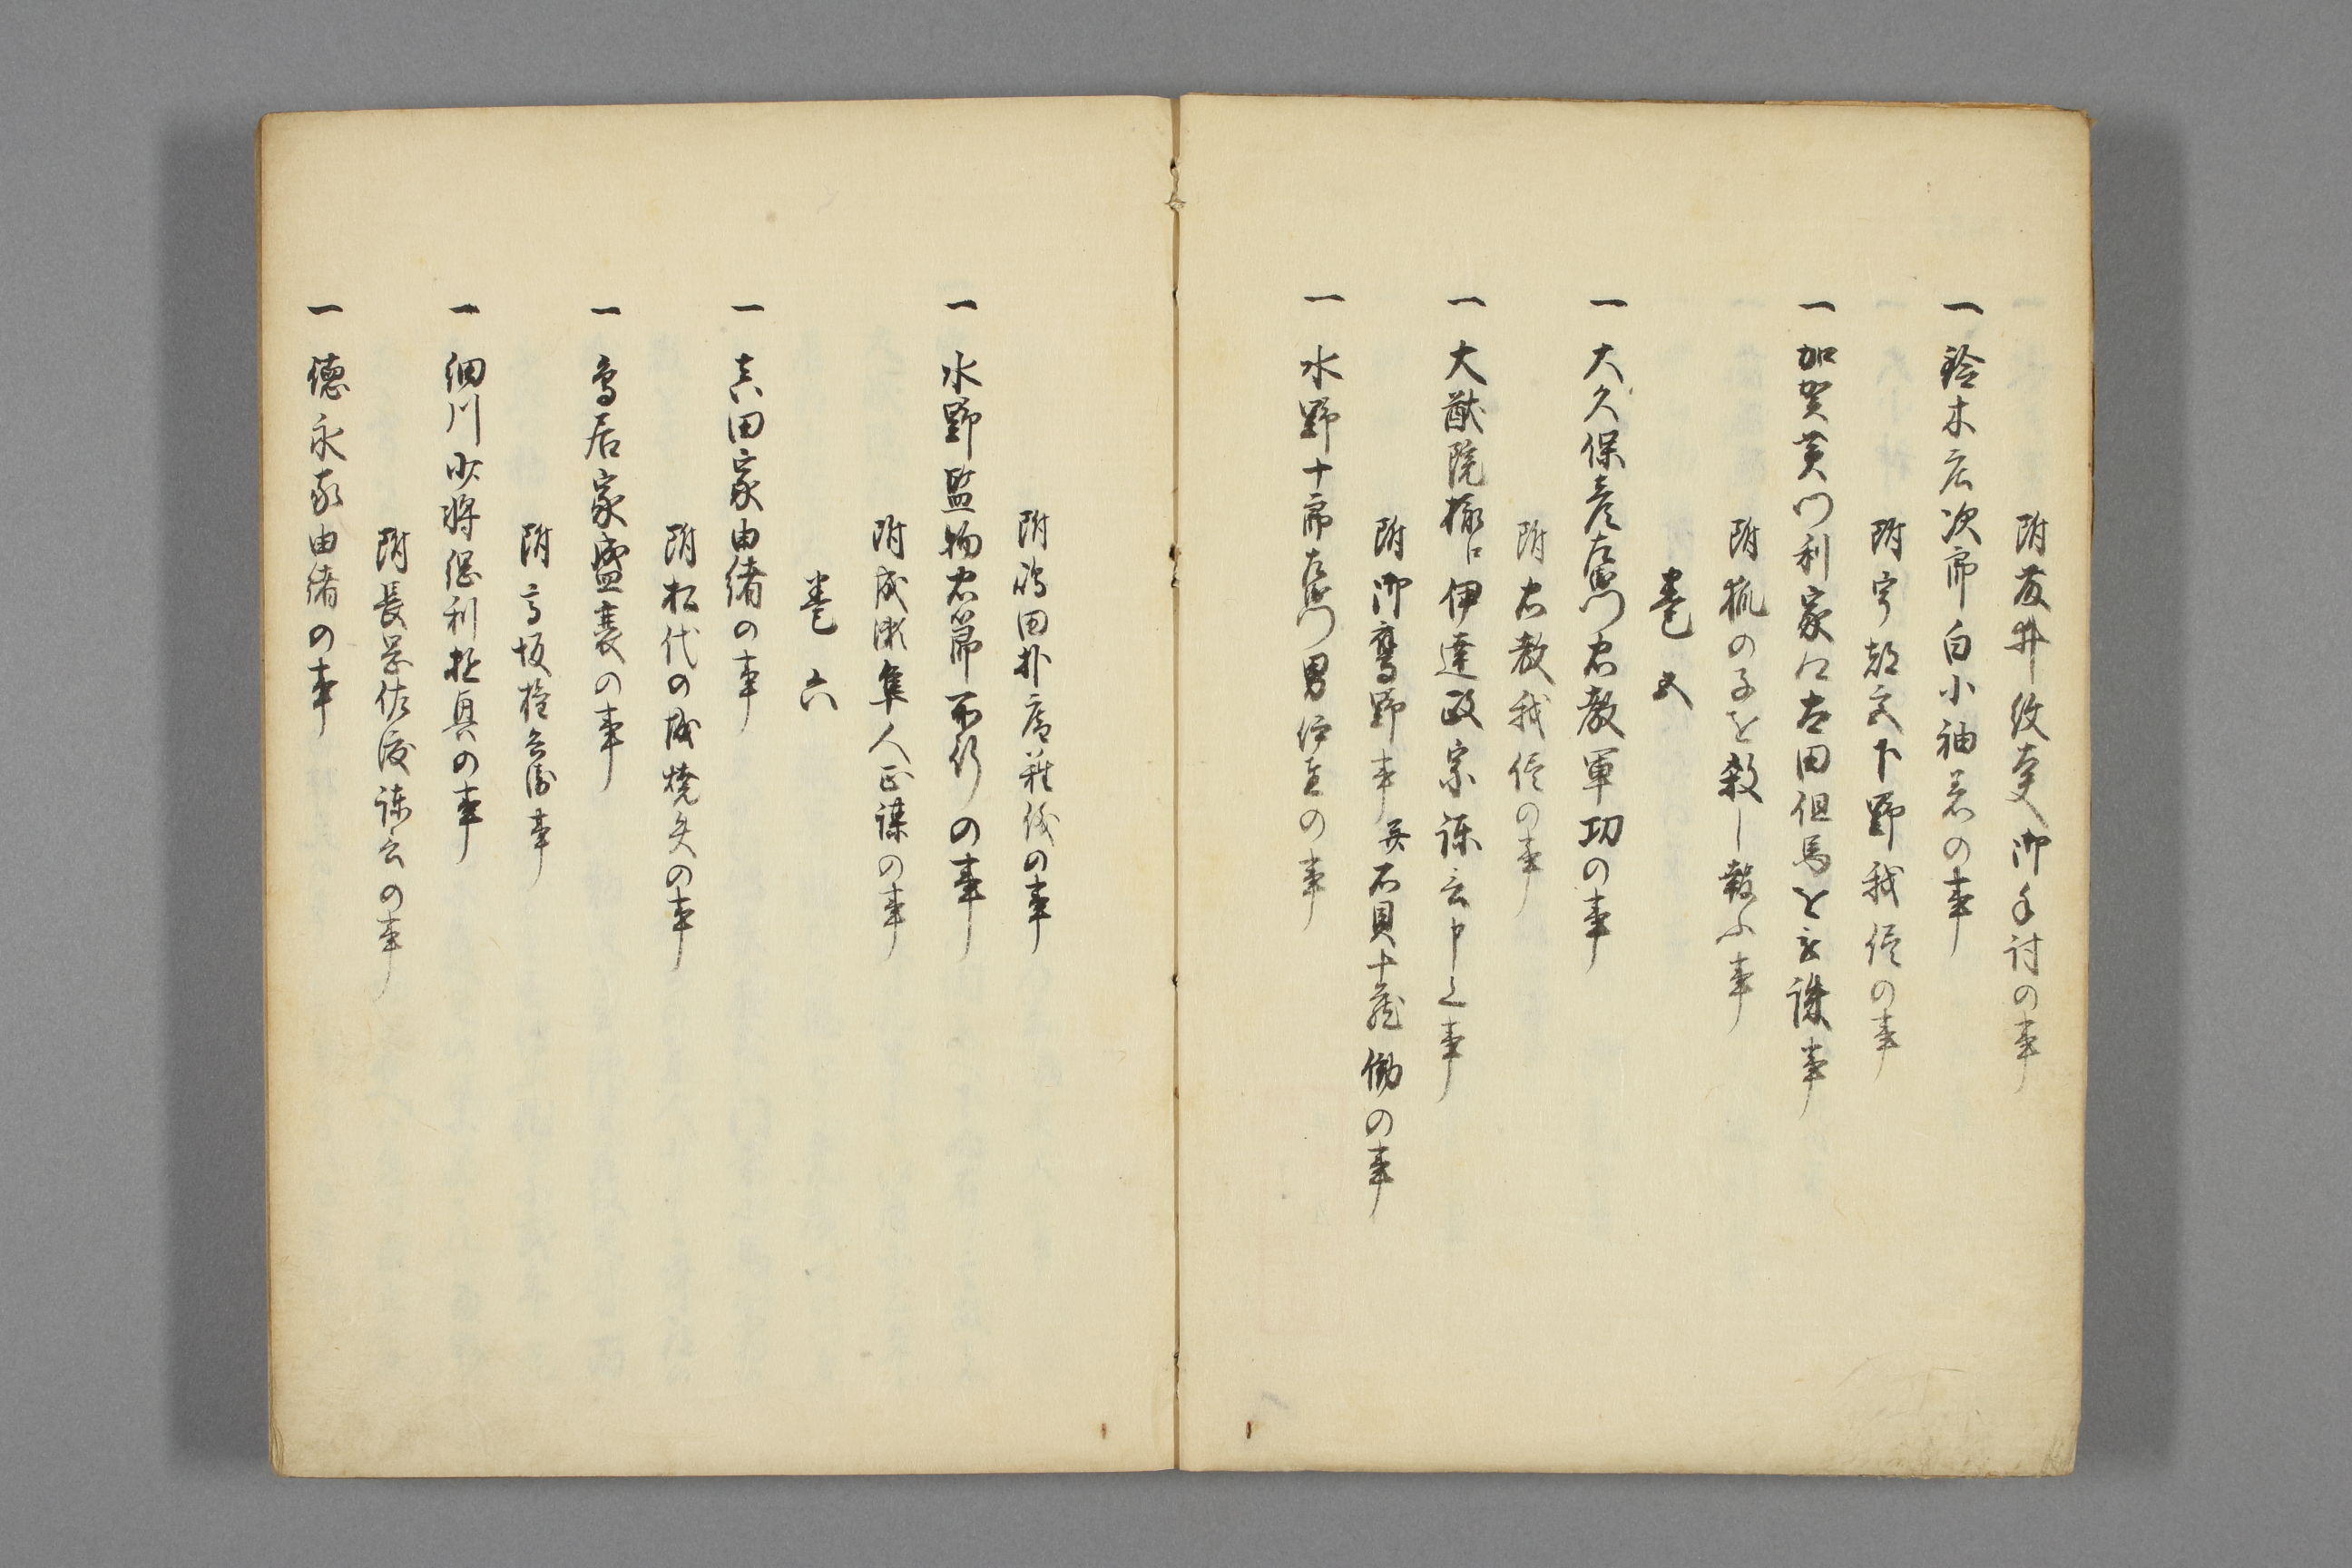 附藤井紋太夫御手討の事
一 鈴木友次郎白小袖着の事
附宇都宮下野我侭の事
一 加賀黄門利家口古田但馬を被誅事
附狐の子を殺し報ふ事
巻五
一 大久保彦左衛門忠教軍功の事
附忠教我侭の事
一 大猷院様江伊達政宗諫言申上事
附御鷹野事并石貝十蔵働の事
一 水野十郎左衛門男伊達の事
附嶋田朴庵難儀の事
一 水野監物忠節不行の事
附成瀬隼人正謀の事
巻六
一 真田家由緒の事
附松代の城焼失の事
一 鳥居家盛衰の事
附高坂権兵衛事
一 細川少将綱利粗具の事
附長岡佐渡諫言の事
一 徳永家由緒の事